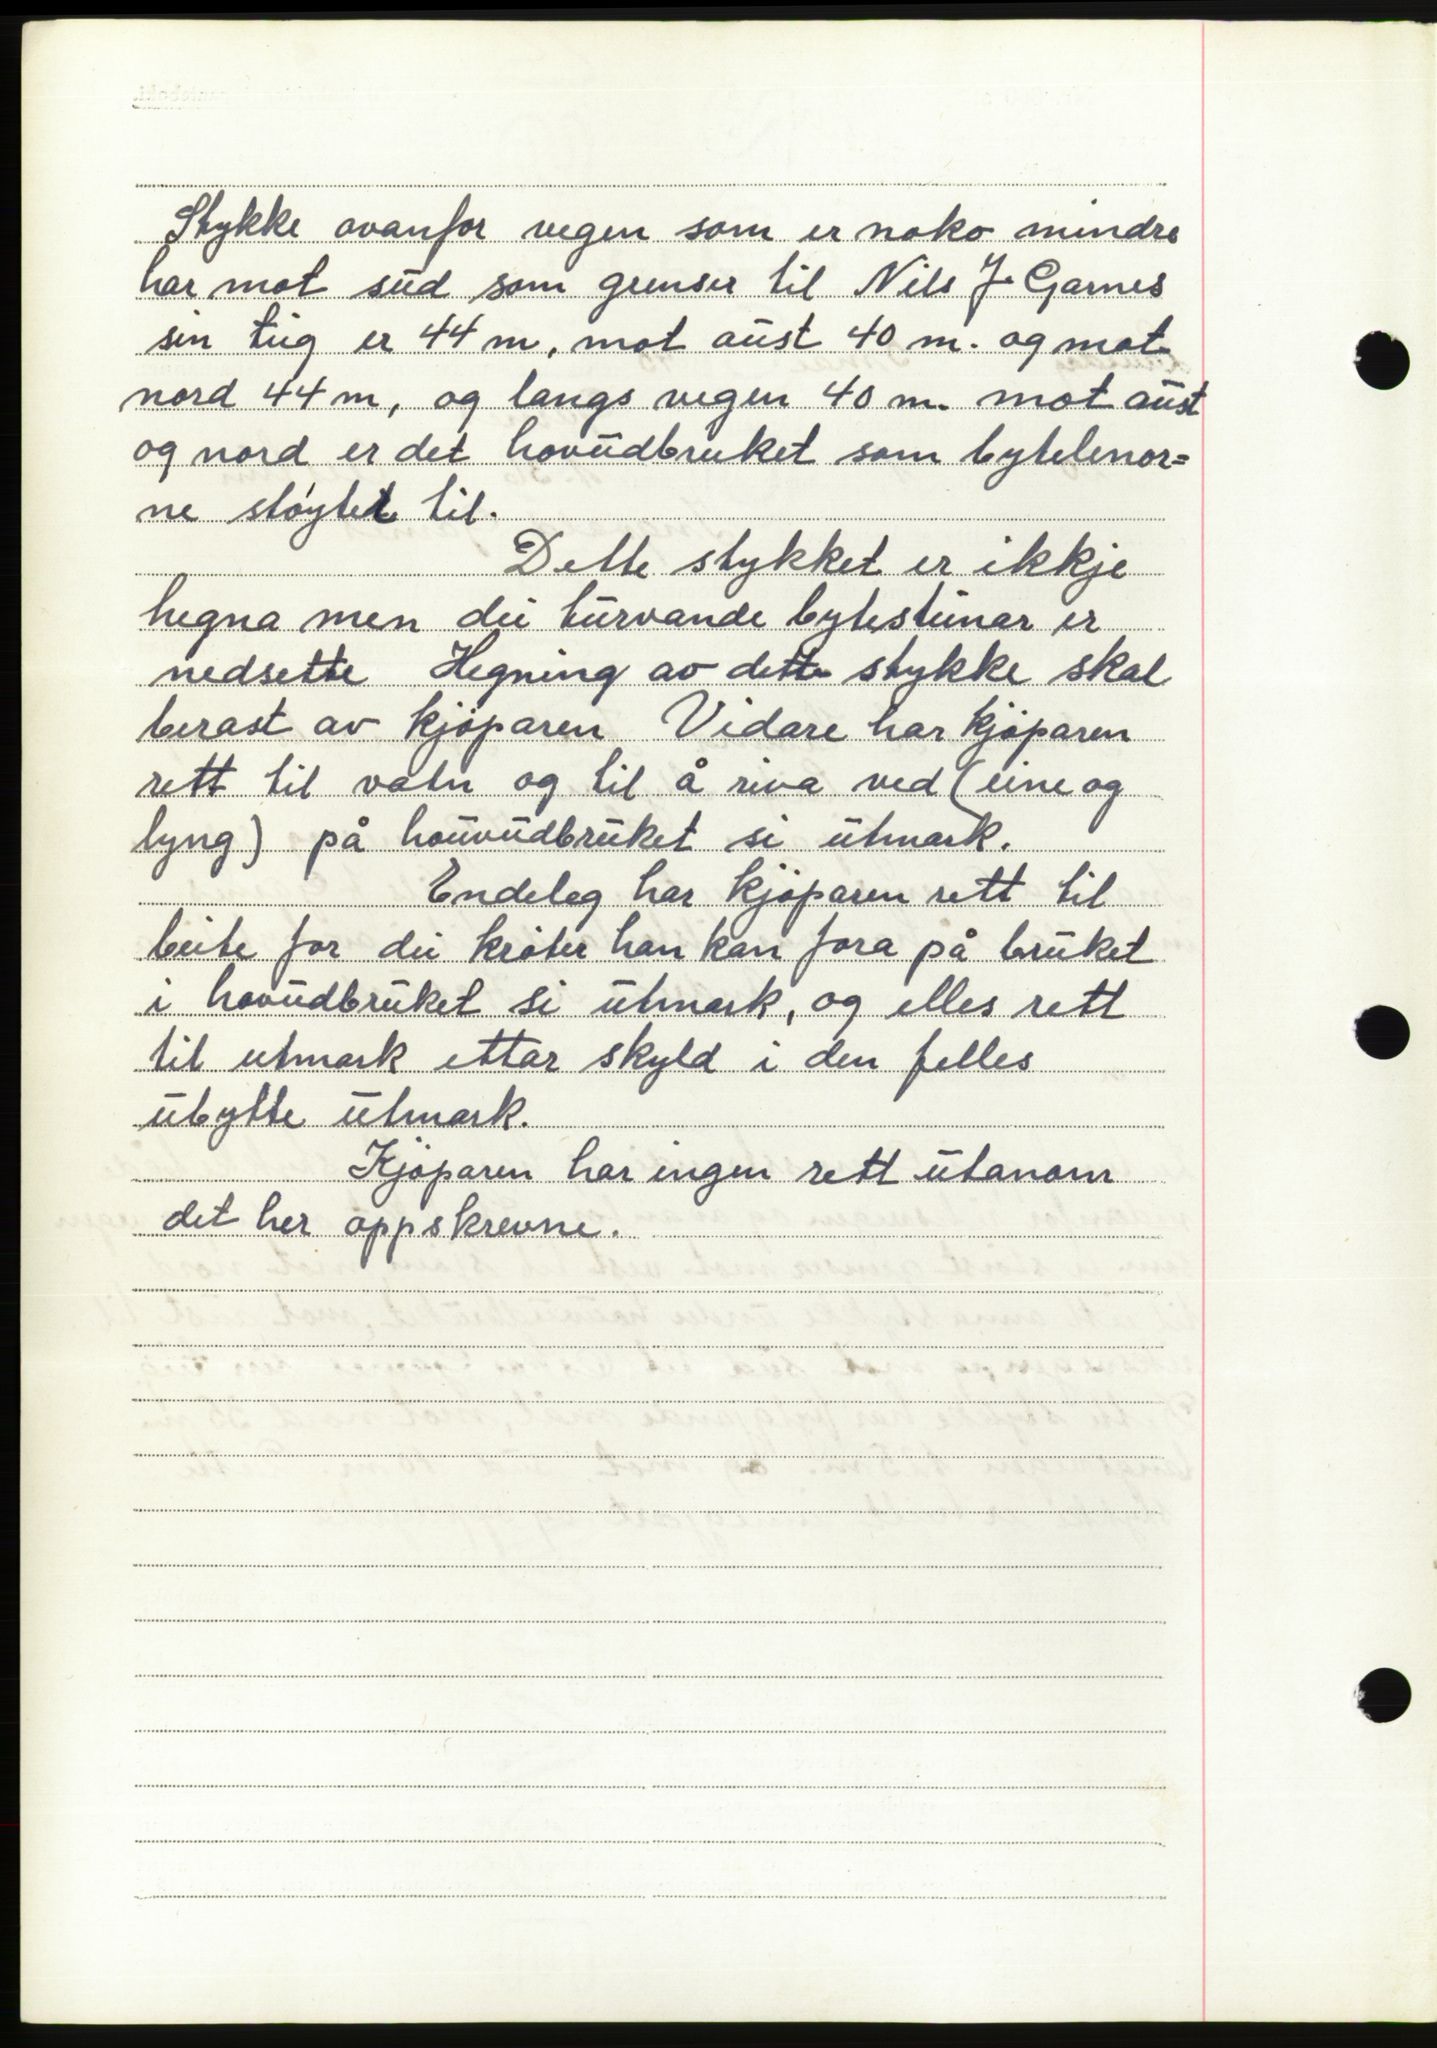 Stykke ovanfor vegen som er noko mindre
har mot sud som grenser til Nils J. Garnes
sin teig er 44 m, mot aust 40 m. og mot
nord 44 m, og langs vegen 40 m. mot aust
og nord er det hovudbruket som bytelenor=
ne støyter til.
Dette stykket er ikkje
hegna men dei turvande bytesteinar er
nedsette Hegning av dette stykke skal
berast av kjöparen Vidare har kjöparen
rett til vatn og til å riva ved (eine og
lyng) på houvudbruket si utmark.
Endeleg har kjöparen rett til
beite for dei krøter han kan fora på bruket
i hovudbruket si utmark, og elles rett
til utmark ettar skyld i den felles
ubytte utmark.
Kjöparen har ingen rett utanom
det her oppskrevne.